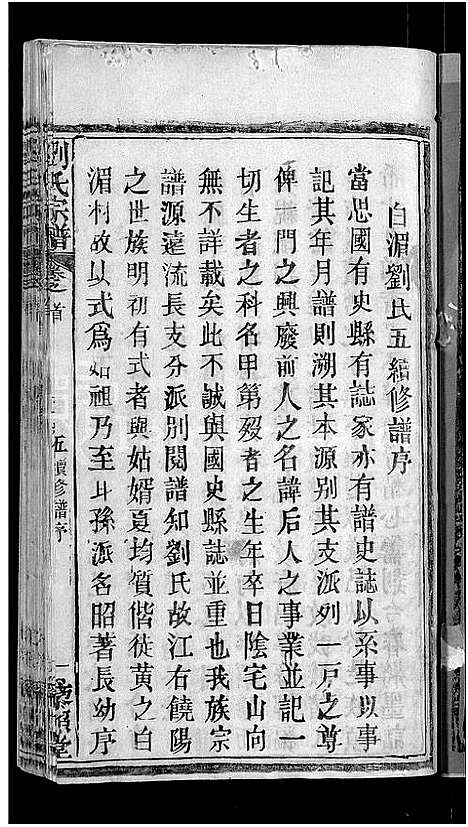 白湄劉氏五續修譜序
當思國有史縣有誌家亦有譜史誌以系事以事
記其年月譜則溯其本源别其支派列一戸之尊
俾一門之興廢前人之名諱后人之事業並記一
切生者之科名甲第殁者之生年卒日陰宅山向
無不詳載矣此不誠與國史縣誌並重也我族宗
譜源遠流長支分派別閱譜知劉氏故江右饒陽
之世族明初有式者與姑婿夏均質偕徙黄之白
湄村故以式爲始祖乃至耳孫派名昭著長幼序
劉氏宗譜
卷之首
五續修譜序
一